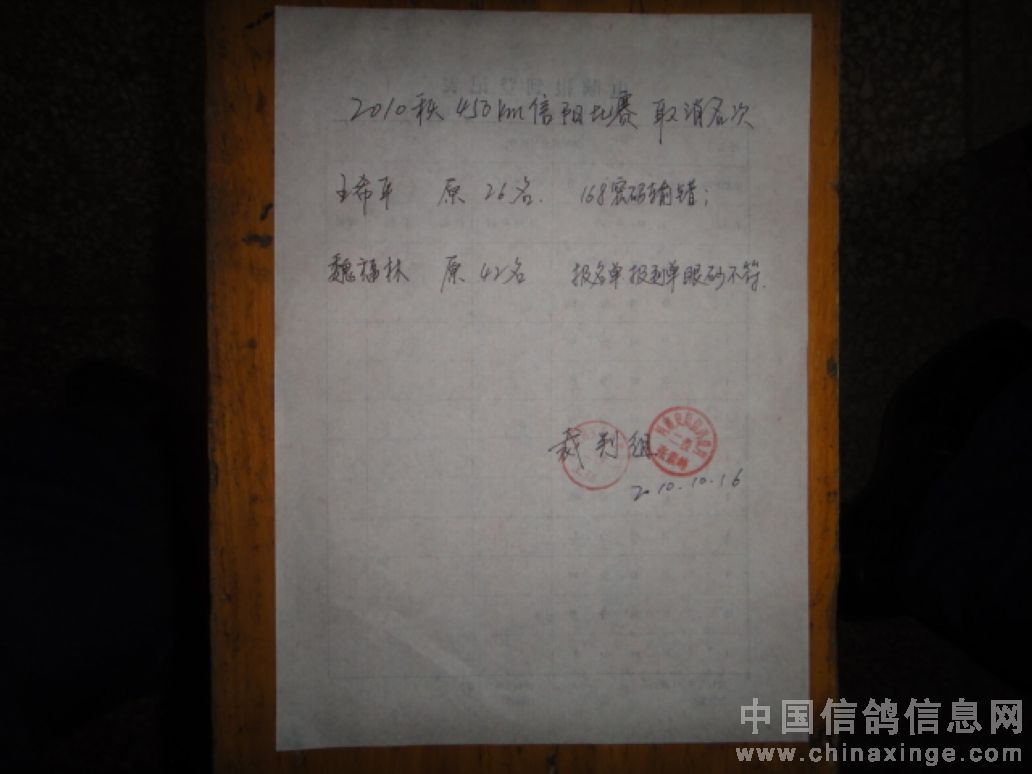 2010秋 450km信阳比赛 取消名次
王希平 原 26名. 168密码输错;
魏福林 原 42名 报名单报到单眼砂不符.
裁判组
二级
2010.10.16
中国信鸽信息网
www.chinaxinge.com